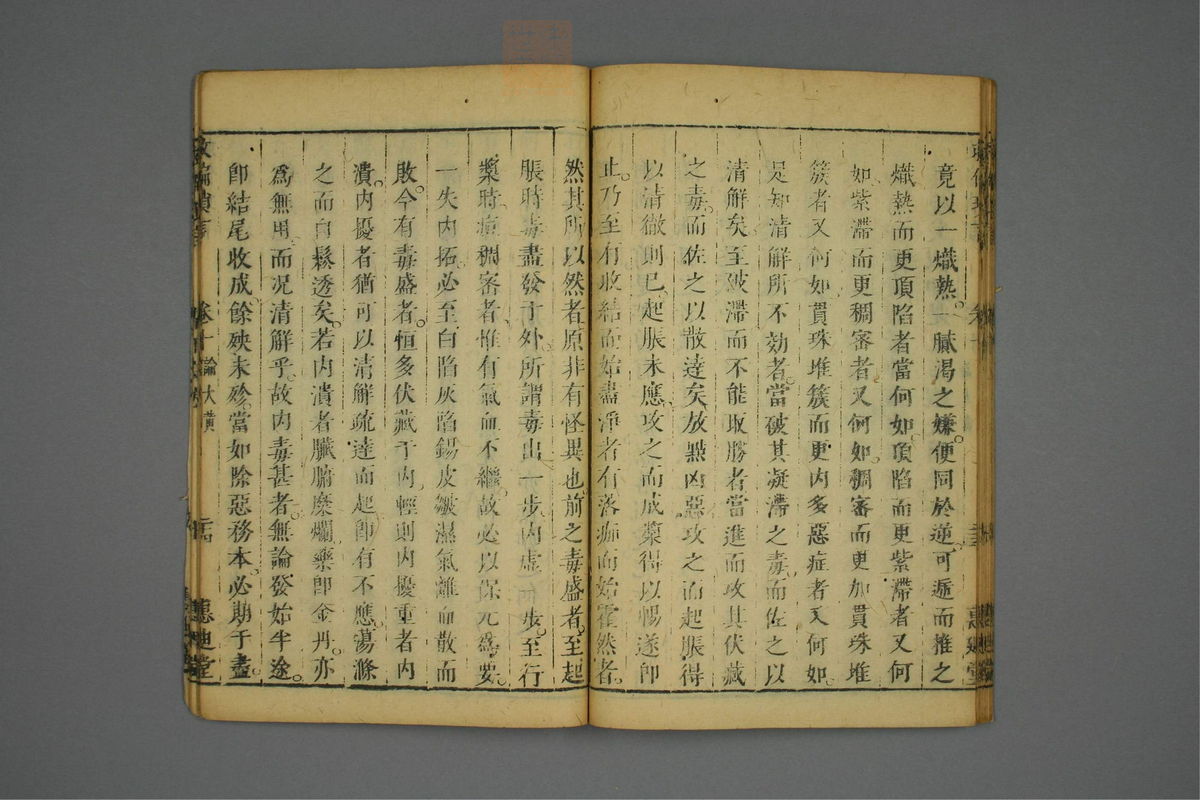 竟以一熾熱一膩渴之嫌便同於逆可遞而推之
熾熱而更頂陷者當何如頂陷而更紫滯者又何
如紫滯而更稠密者又何如稠密而更加貫珠堆
簇者又何如貫珠堆簇而更內多惡症者又何如
是知清解所不効者當破其凝滯之毒而佐之以
清解矣至破滯而不能取勝者當進而攻其伏藏
之毒而佐之以散達矣故㸃凶惡攻之而起脹得
以清徹則已起脹未應攻之而成漿得以暢遂即
止乃至有收結而始盡淨者有落痂而始霍然者
然其所以然者原非有怪異也前之毒盛者至起
脹時毒盡發于外所謂毒出一步內虛一步至行
漿時痘稠密者惟有氣血不繼故必以保元爲要
一失內拓必至白陷灰陷錫皮皺濕氣離血散而
敗今有毒盛者恒多伏藏于內輕則內擾重者內
潰內擾者猶可以清解疏達而起即有不應蕩滌
之而自鬆透矣若內潰者臟腑糜爛藥即金丹亦
爲無用而况清解乎故內毒甚者無論發始半途
即結尾收成餘殃未殄當如除惡務本必期于盡
卷十論大潢
惠迪堂